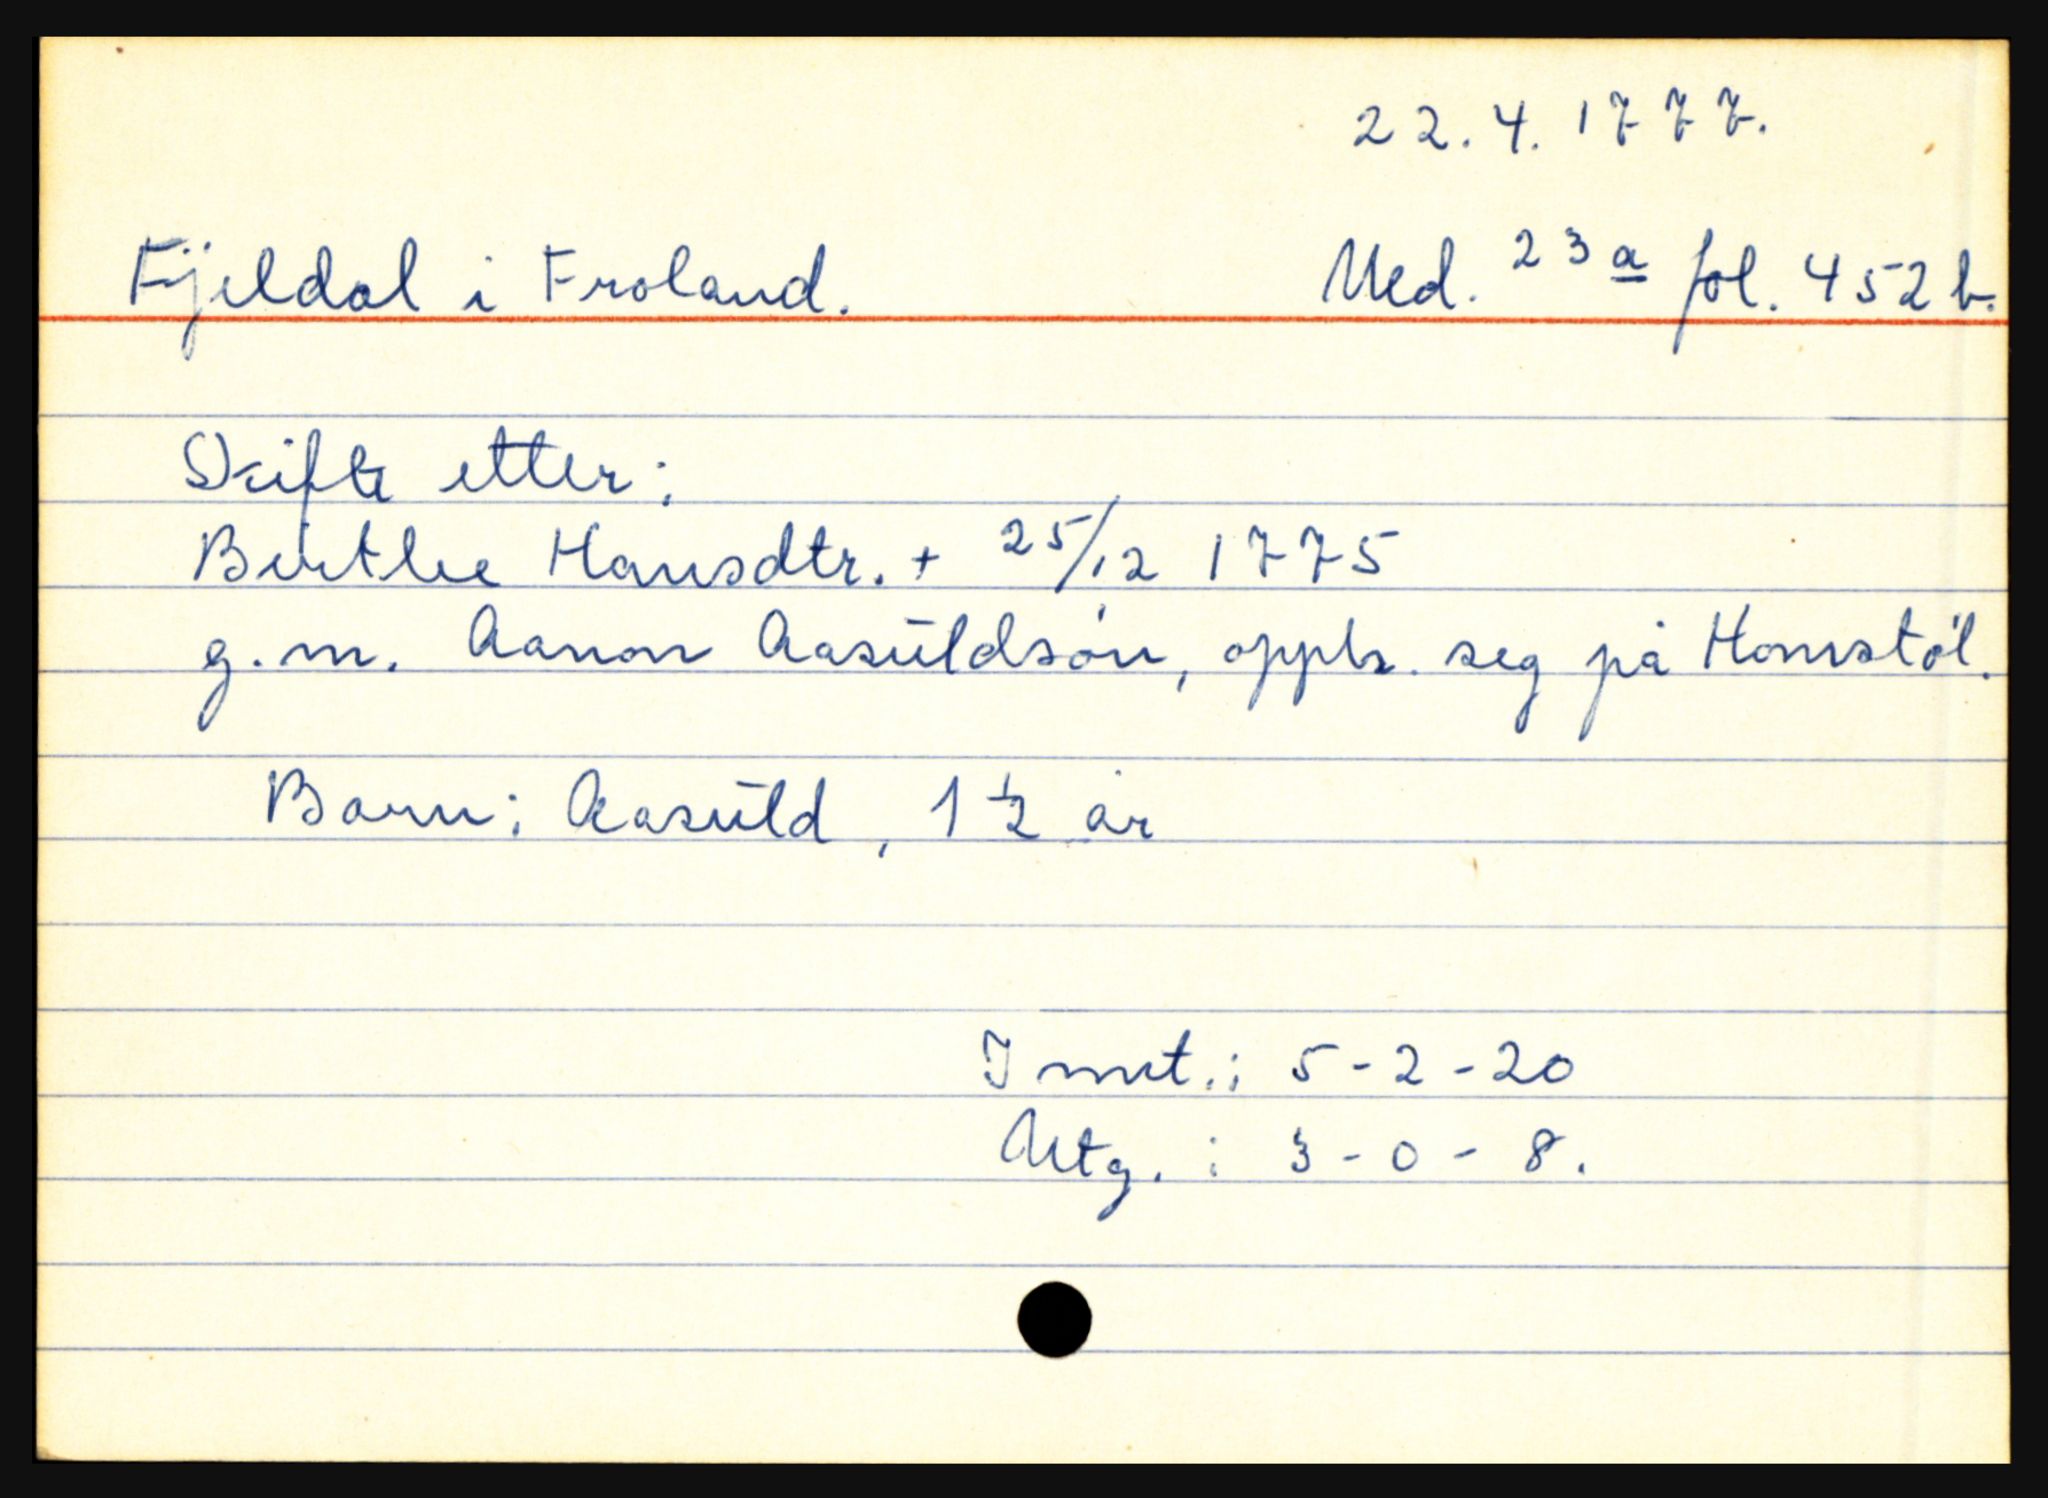 22.4.1777.
Fjeldal i Froland. Ned. 23a fol. 452 b.
Skifte etter:
Birthe Hansdtr. + 25/12 1775
g.m. Aanon Aasuldsön, opph. seg på Homstöl.
Barn: Aasuld, 1 1/2 år
Innt.: 5-2-20
Utg.: 3-0-8.